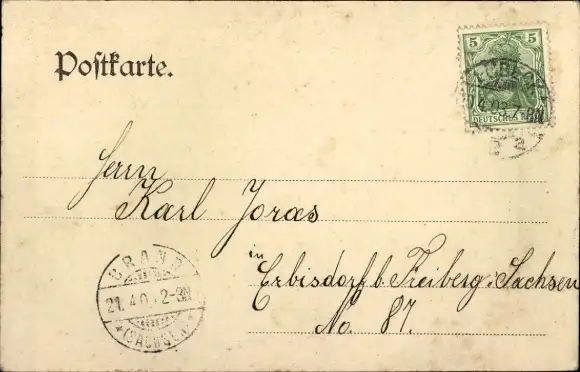 Postkarte.
5 5
LÜBECK
DEUTSCHES REICH
Herrn
Karl Joras
in
Erbisdorf b. Freiberg. Sachsen
No. 87.
BRAND
21.4.0 . 2-3N
* (SACHSEN) *